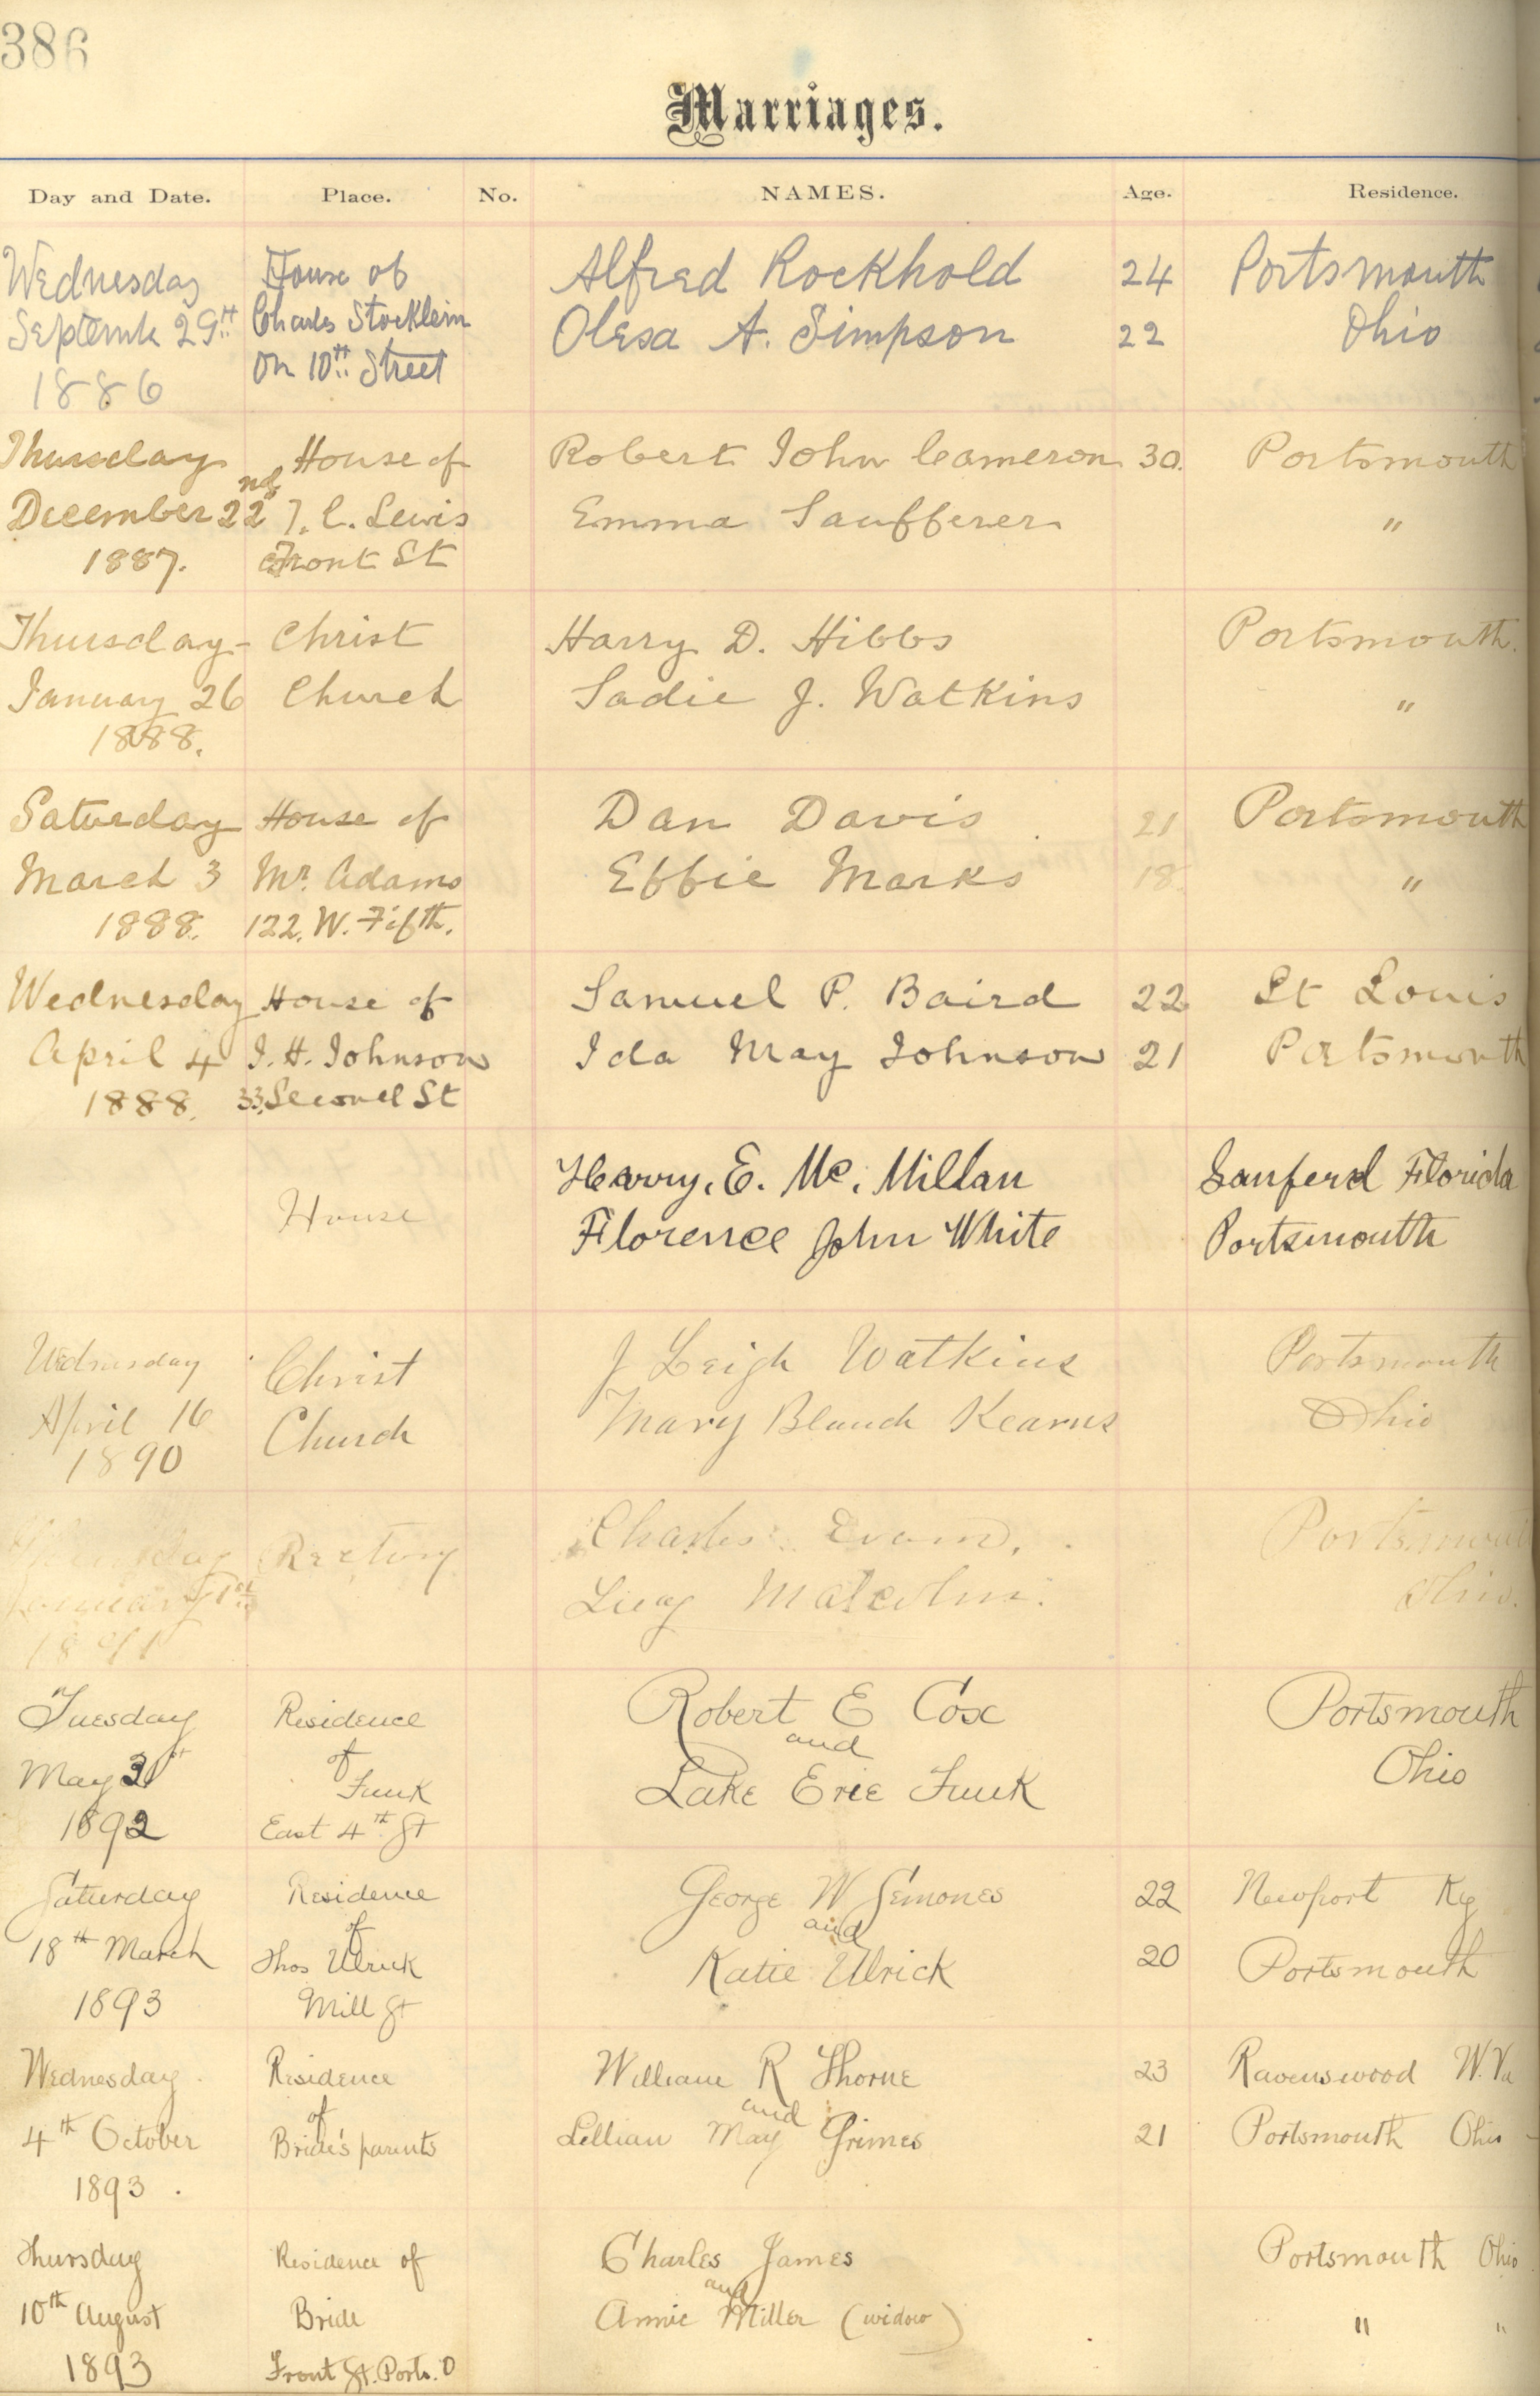 386
Marriages.
Day and Date. Place. No. NAMES. Age. Residence.
Wednesday House of Alfred Rockhold 24 Portsmouth
29th Charles Stocklein Olesa A. Simpson 22 Ohio
1886 On 10th Street
Thursday House of Robert John Cameron 30. Portsmouth
December 22nd T. C. Lewis Emma Saufferer "
1887. Front St
Thursday- Christ Harry D. Hibbs Portsmouth.
January 26 Church Sadie J. Watkins "
1888.
Saturday House of Dan Davis 21 Portsmouth
March 3 Mr. Adams Effie Marks 18. "
1888. 122. W. Fifth.
Wednesday House of Samuel P. Baird 22 St Louis
April 4 I. H. Johnson Ida May Johnson 21 Portsmouth
1888. 33. Second St
Harry. E. Mc. Millan Sanferd Florida
House Florence John White Portsmouth
Wednesday Christ J Leigh Watkins Portsmouth
April 16 Church Mary Blanch Kearns Ohio
1890
Thursday Rectory Charles Evans. Portsmouth
January 1st Lucy Malcolm. Ohio.
1891
Tuesday Residence Robert E Cox Portsmouth
of and
May 31st Funk Lake Erie Funk Ohio
1892 East 4th St
Saturday Residence George W Semones 22 Newport Ky
of and
18th March Thos Ulrick Katie Ulrick 20 Portsmouth
1893 Mill St
Wednesday. Residence William R Thorne 23 Ravenswood W. Va
of and
4th October Bride's parents Lillian May Grimes 21 Portsmouth Ohio
1893.
Thursday Residence of Charles James Portsmouth Ohio
and
10th August Bride Annie Miller (widow) " "
1893 Front St. Ports. O